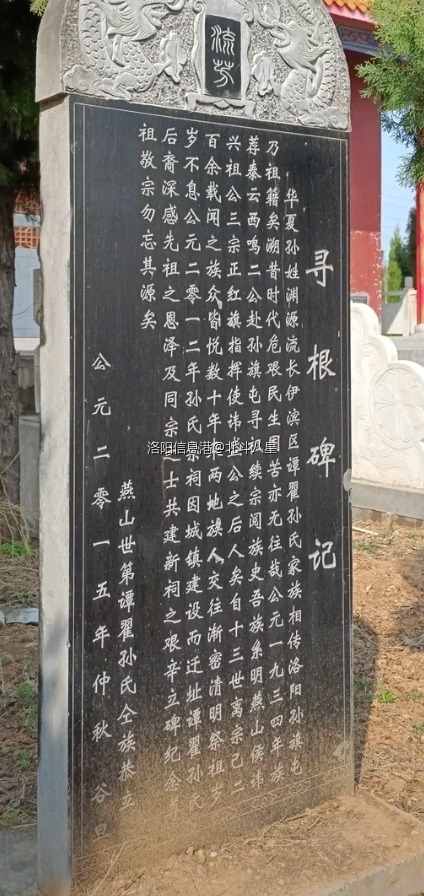 流芳
寻根碑记
华夏孙姓渊源流长伊滨区谭翟孙氏家族相传洛阳孙旗屯
乃祖籍矣溯昔时代危艰民生困苦亦无往哉公元一九三四年族
荐泰云西鸣二公赴孙旗屯寻 续宗阅族史吾族系明燕山侯讳
兴祖公三宗正红旗指挥使讳 公之后人矣自十三世离宗已二
百余载闻之族众皆悦数十年 两地族人交往渐密清明祭祖岁
岁不息公元二零一二年孙氏宗祠因城镇建设而迁址谭翟孙氏
后裔深感先祖之恩泽及同宗之士共建新祠之艰辛立碑纪念尊
祖敬宗勿忘其源矣
燕山世第谭翟孙氏全族恭立
公元二零一五年仲秋 谷旦
洛阳信息港@北斗八星